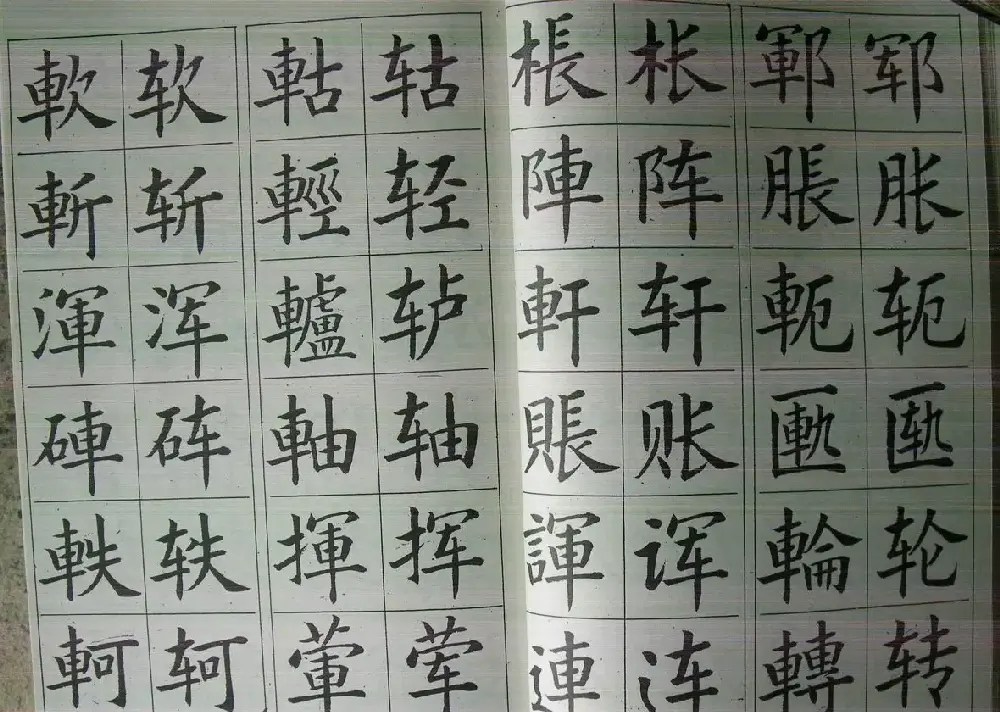 軟 软 軲 轱 棖 枨 鄆 郓
斬 斩 輕 轻 陣 阵 脹 胀
渾 浑 轤 轳 軒 轩 軛 轭
硨 砗 軸 轴 賬 账 匭 匦
軼 轶 揮 挥 諢 诨 輪 轮
軻 轲 葷 荤 連 连 轉 转